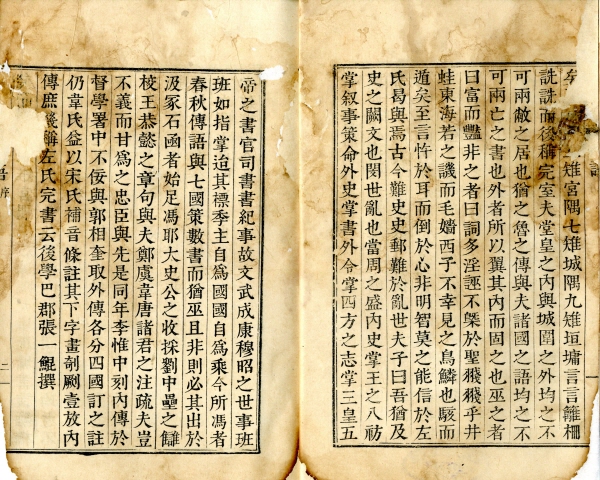 雉宮隅七雉城隅九雉垣墉言言籬柵
詵詵而後稱完室夫堂皇之內與城圍之外均之不
可兩敝之居也猶之魯之傳與夫諸國之語均之不
可兩亡之書也外者所以翼其內而固之也巫之者
曰富而豔非之者曰詞多淫誣不槩於聖戔戔乎井
蛙東海若之譏而毛嬙西子不幸見之鳥鱗也駭而
遁矣至言忤於耳而倒於心非明智莫之能信於左
氏曷與焉古今難史史郵難於亂世夫子曰吾猶及
史之闕文也閔世亂也當周之盛內史掌王之八枋
掌叙事策命外史掌書外令掌四方之志掌三皇五
帝之書官司書書紀事故文武成康穆昭之世事班
班如指掌迨其標季主自為國國自為乘今所馮者
春秋傳語與七國策數書而猶巫且非則必其出於
汲冢石函者始足馮耶大史公之收採劉中壘之讎
校王恭懿之章句與夫鄭虞韋唐諸君之注疏夫豈
不義而甘為之忠臣與先是同年李惟中刻內傳於
督學署中不佞與郭相奎取外傳各分四國訂之註
仍韋氏益以宋氏補音條註其下字畫剞劂壹放內
傳庶幾解左氏完書云後學巴郡張一鯤撰
序
二